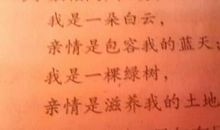 我是一朵白云，
亲情是包容我的蓝天
我是一棵绿树，
亲情是滋养我的土地